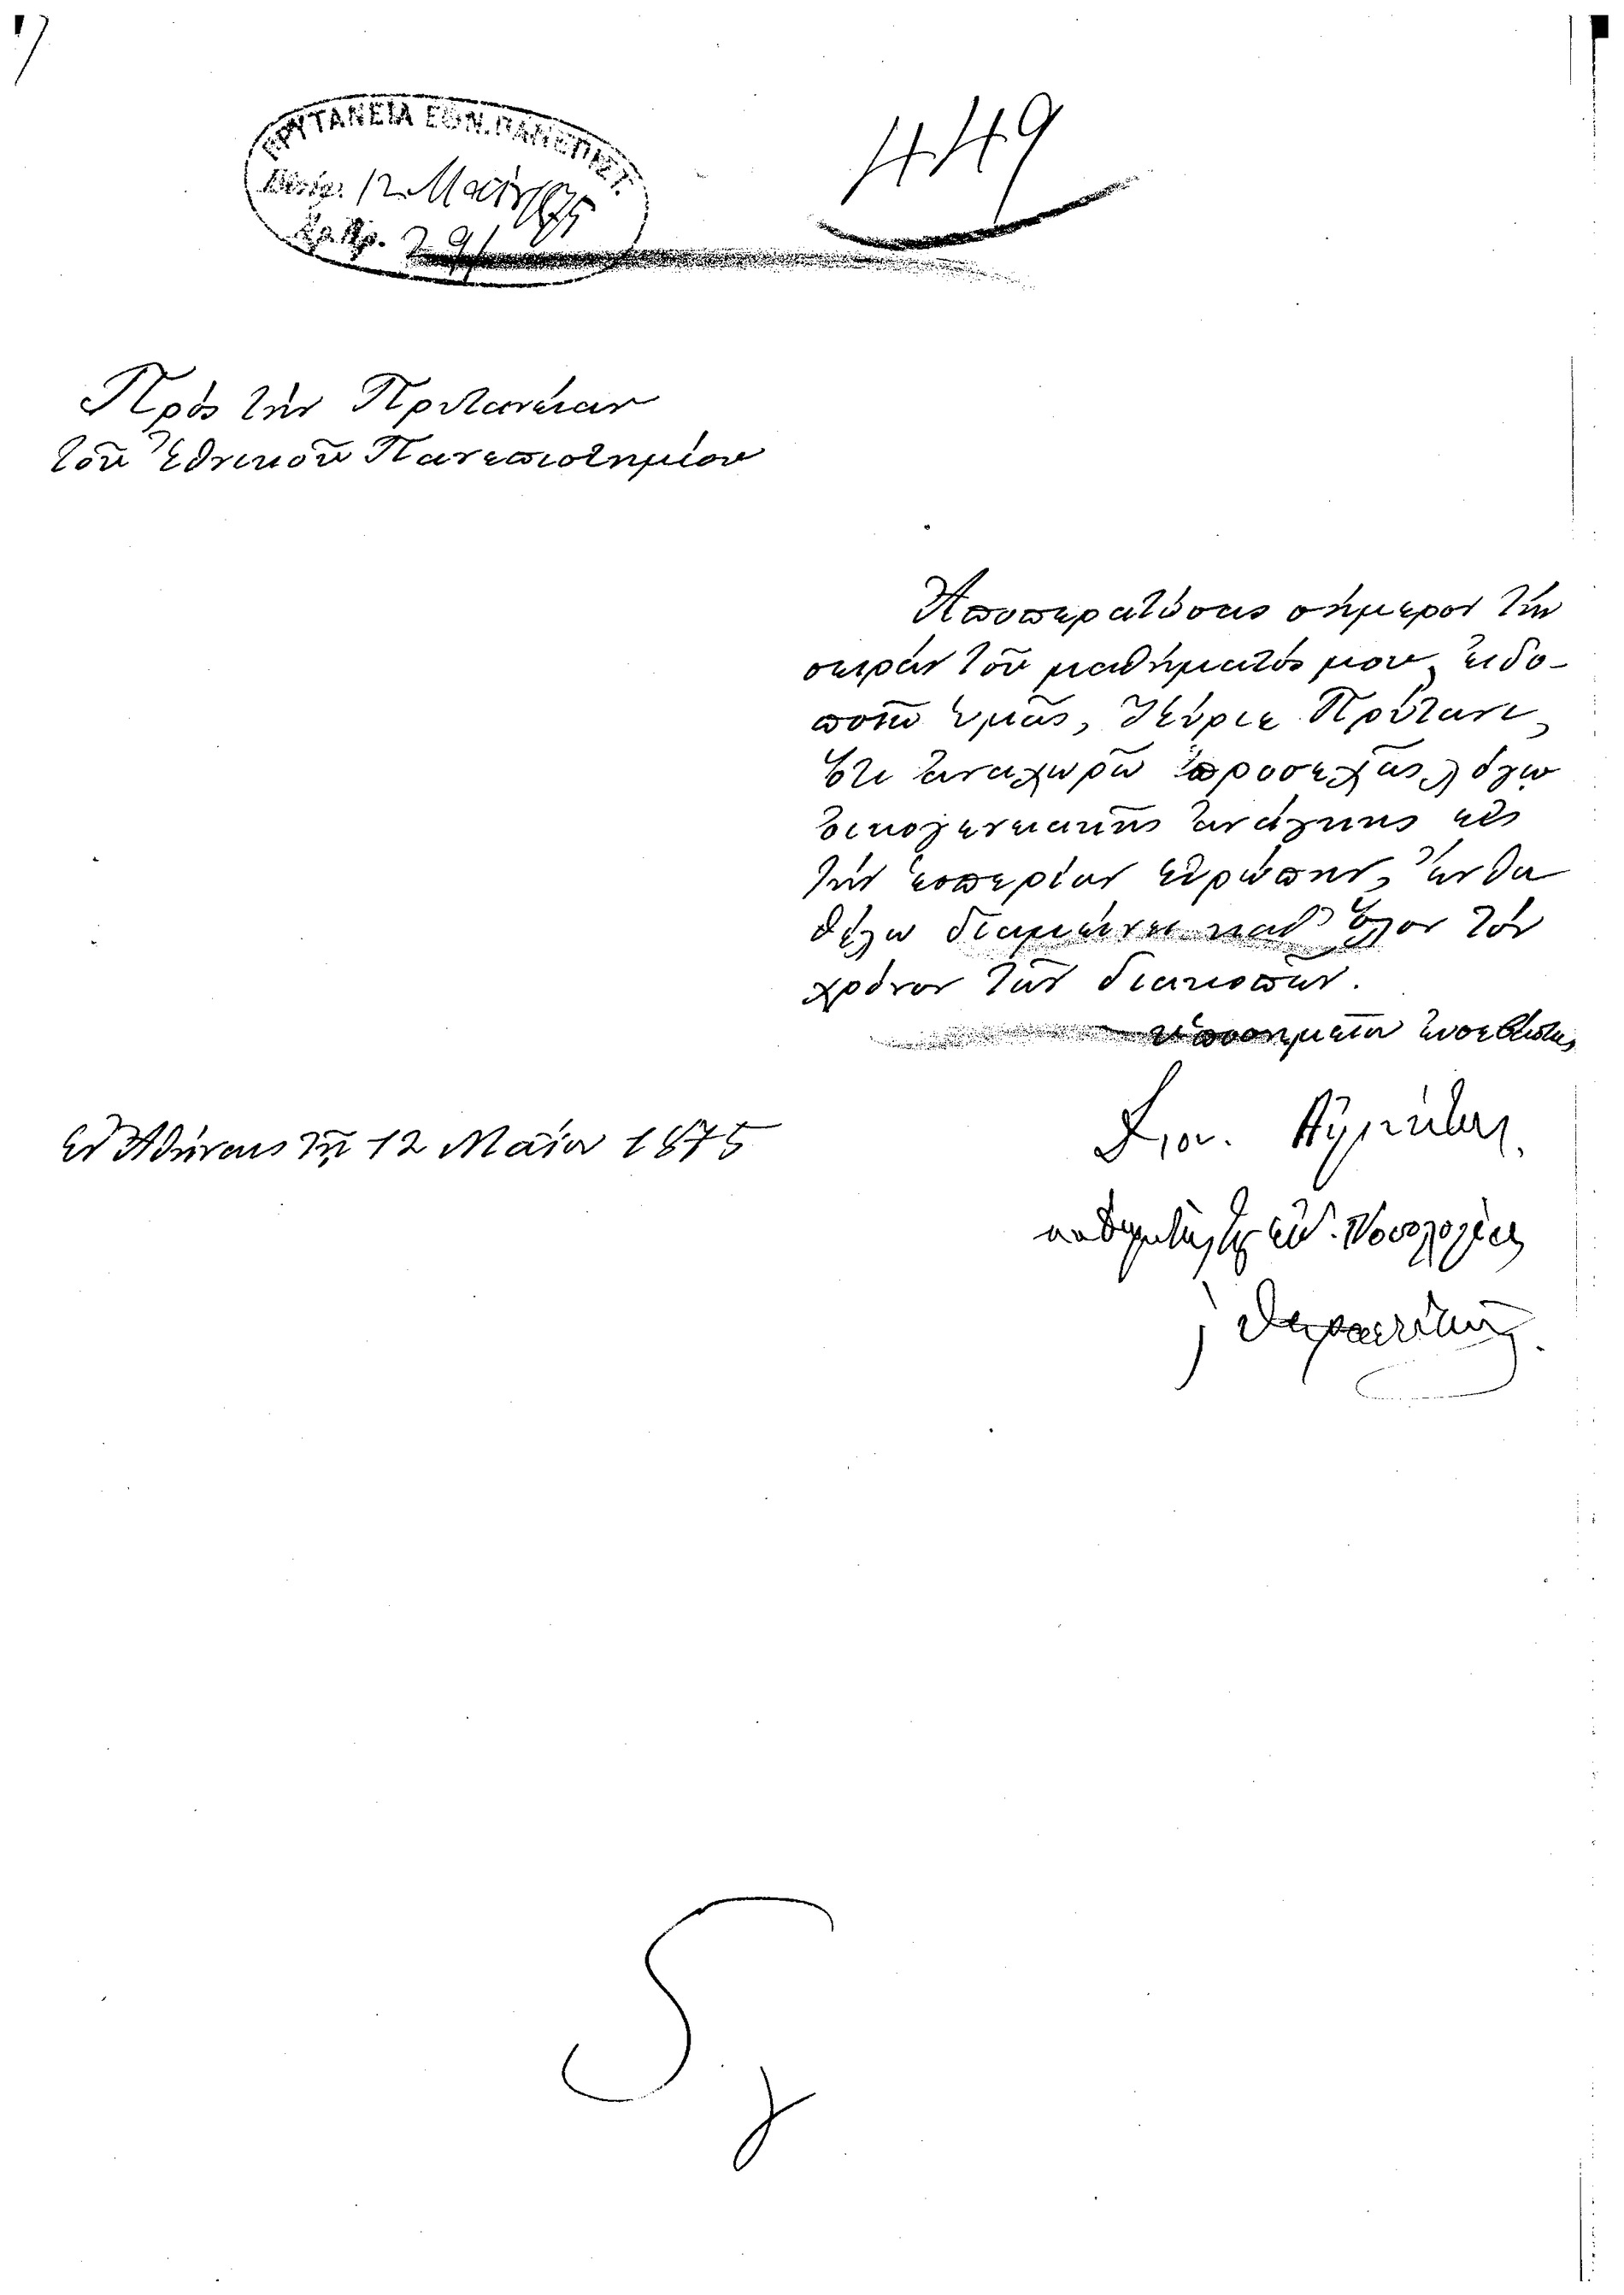 ΠΡΥΤΑΝΕΙΑ ΕΘΝ. ΠΑΝΕΠΙΣΤ.
12 Μαΐου 1875
Ἀρ. Πρ. 291
449
Πρὸς τὴν Πρυτανείαν
τοῦ Ἐθνικοῦ Πανεπιστημίου
Ἀποπερατώσας σήμερον τὴν
σειρὰν τοῦ μαθήματός μου, εἰδο-
ποιῶ ὑμᾶς, Κύριε Πρύτανι,
ὅτι ἀναχωρῶ προσεχῶς λόγῳ
οἰκογενειακῆς ἀνάγκης εἰς
τὴν ἑσπερίαν Εὐρώπην, ἔνθα
θέλω διαμείνει καθ' ὅλον τὸν
χρόνον τῶν διακοπῶν.
ὑποσημειοῦμαι εὐσεβάστως
Ἐν Ἀθήναις τῇ 12 Μαΐου 1875
καθηγητὴς τῆς εἰδ. Νοσολογίας